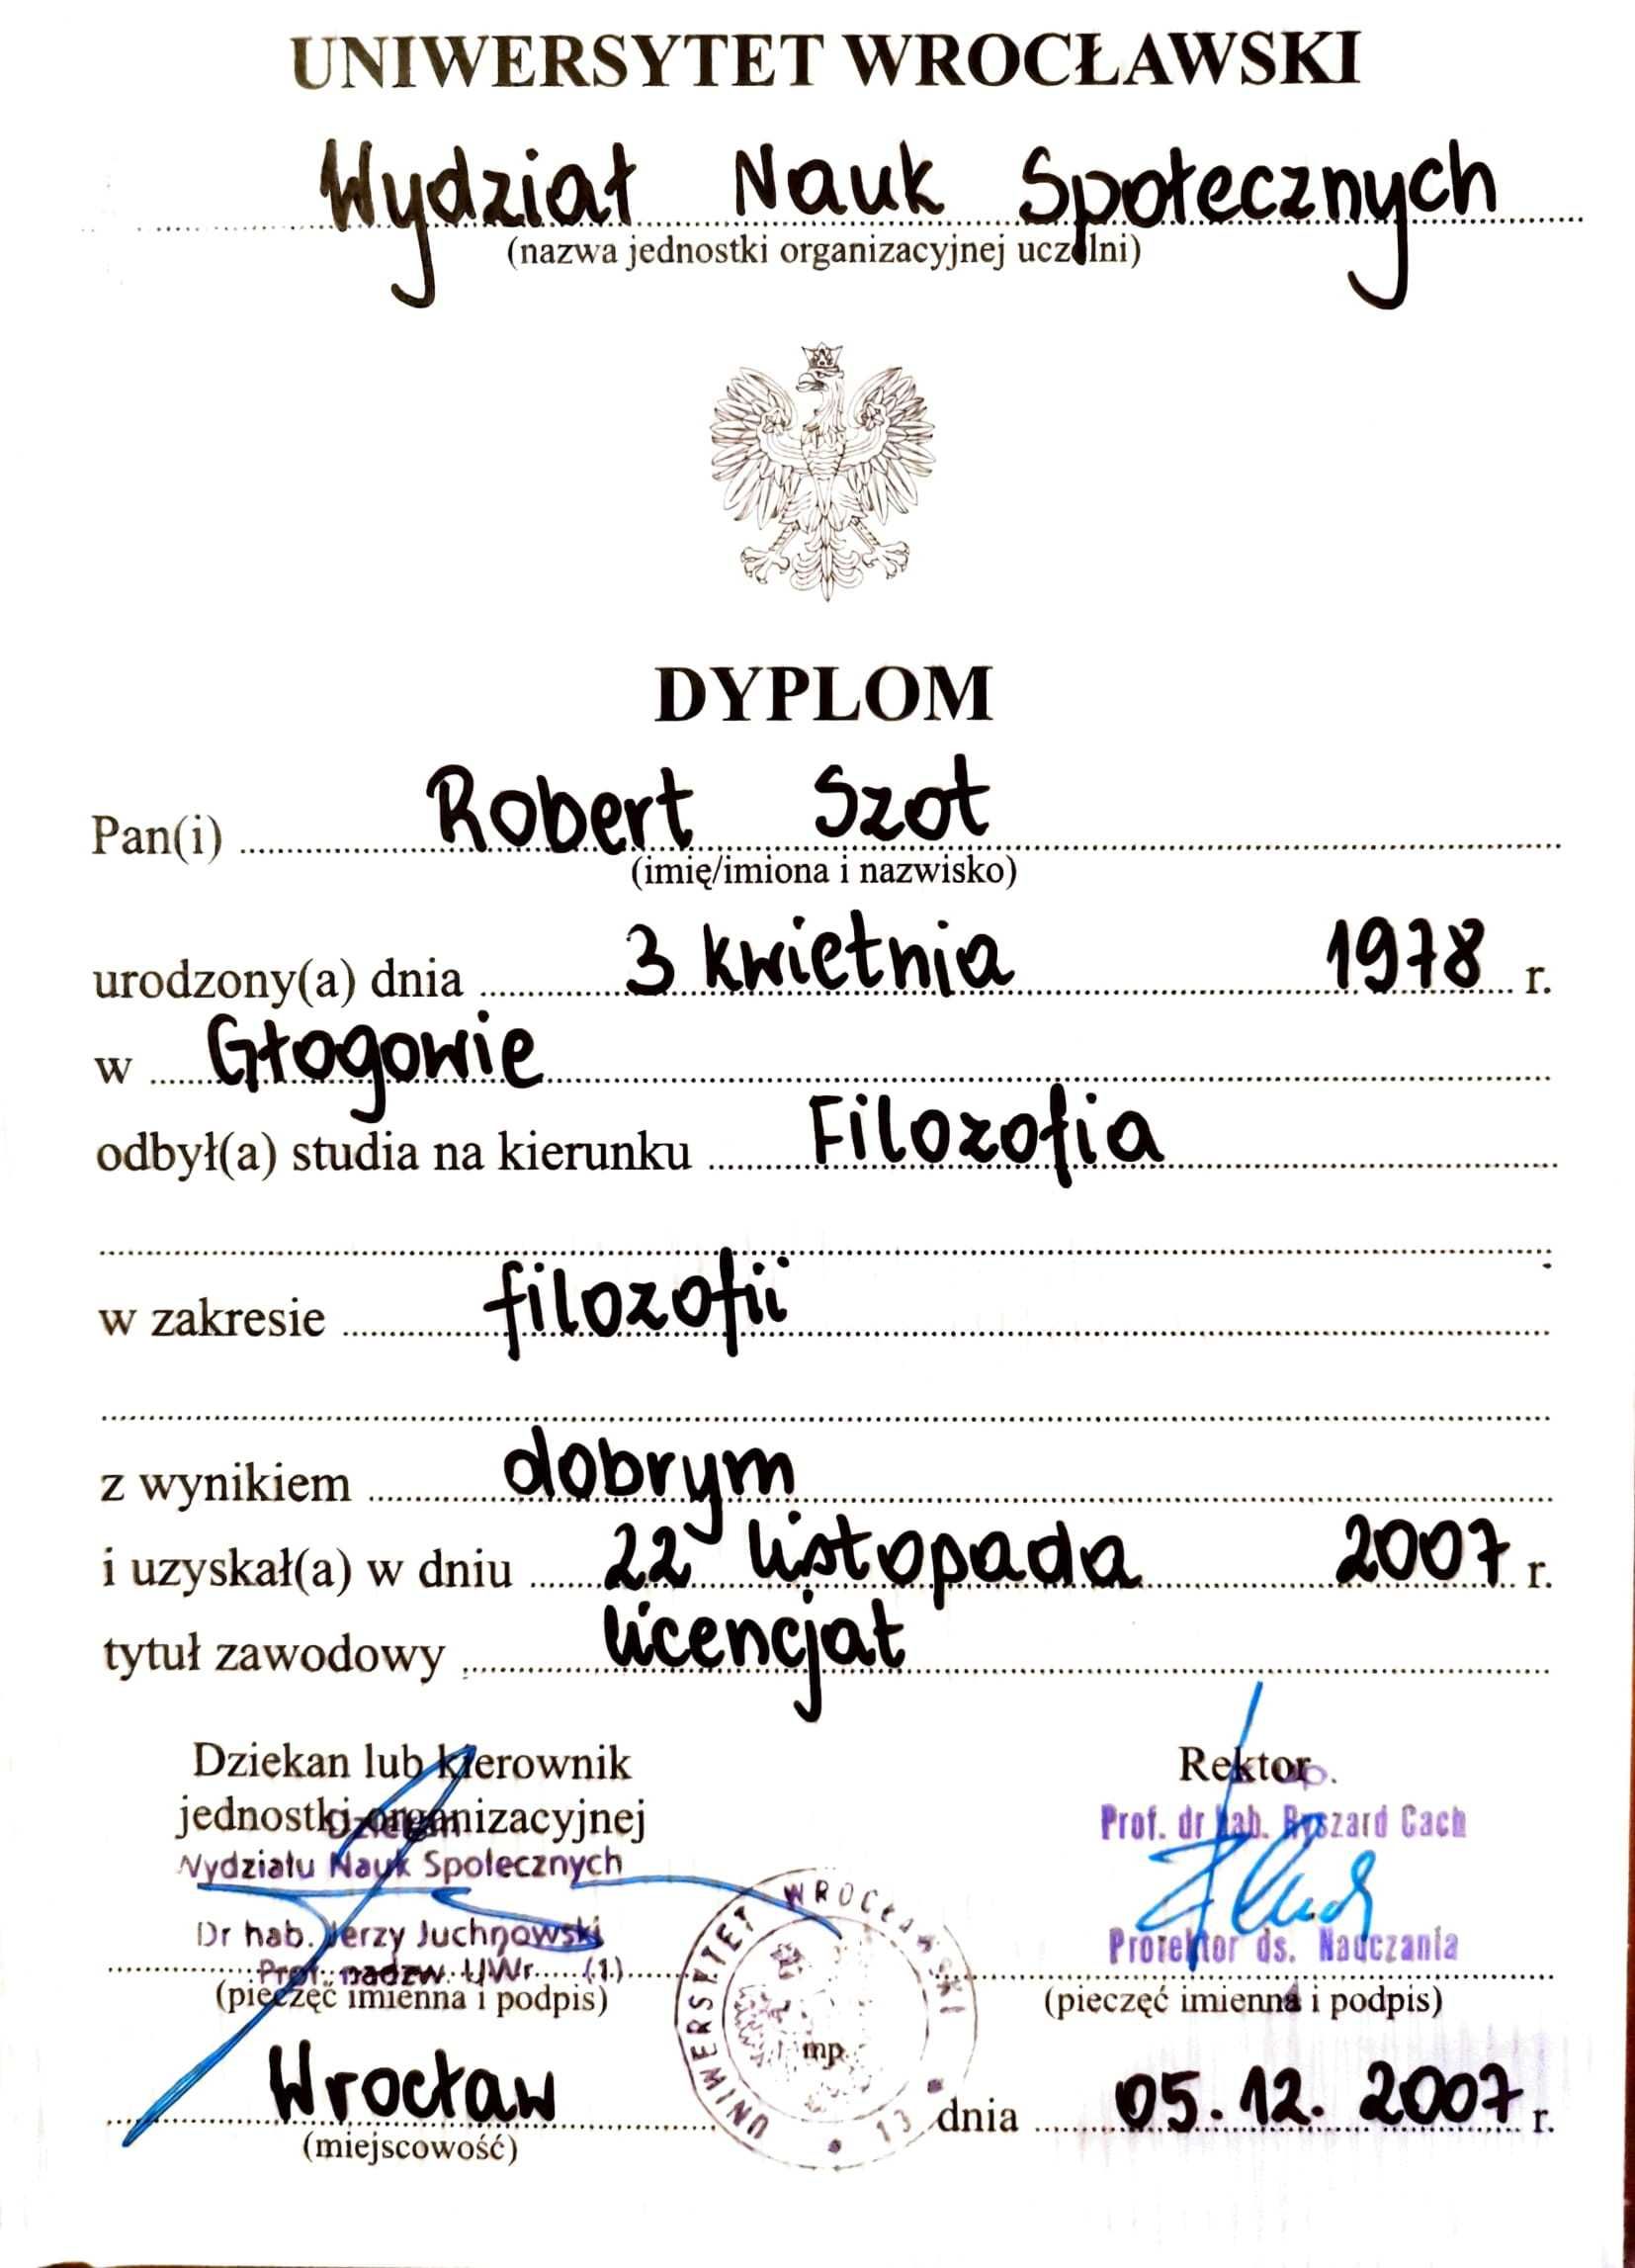 UNIWERSYTET WROCŁAWSKI
Wydział Nauk Społecznych
(nazwa jednostki organizacyjnej uczelni)
DYPLOM
Pan(i) Robert Szot
(imię/imiona i nazwisko)
urodzony(a) dnia 3 kwietnia 1978 r.
w Głogowie
odbył(a) studia na kierunku Filozofia
w zakresie filozofii
z wynikiem dobrym
i uzyskał(a) w dniu 22 listopada 2007 r.
tytuł zawodowy licencjat
Dziekan lub kierownik
jednostki organizacyjnej
Dziekan
Wydziału Nauk Społecznych
Dr hab. Jerzy Juchnowski
Prof. nadzw. UWr (1)
(pieczęć imienna i podpis)
Rektor
Prof. dr hab. Ryszard Cach
Prorektor ds. Nauczania
(pieczęć imienna i podpis)
UNIWERSYTET WROCŁAWSKI
13
mp.
Wrocław
(miejscowość)
dnia 05.12.2007 r.